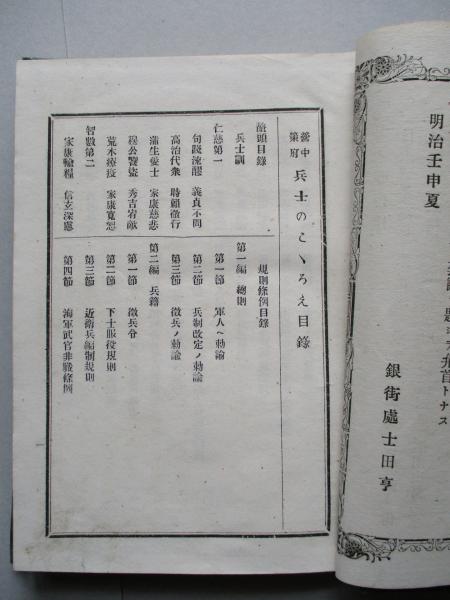 明治壬申夏
銀街處士田亨
營中
策府
兵士のこゝろえ目錄
規則條例目錄
第一編 總則
第一節 軍人ヘ勅諭
第二節 兵制改定ノ勅諭
第三節 徵兵ノ勅諭
第二編 兵籍
第一節 徵兵令
第二節 下士服役規則
第三節 近衛兵編制規則
第四節 海軍武官非職條例
頭目錄
兵士訓
仁慈第一
句踐 義貞不問
高治代衆 時賴微行
蒲生愛士 家康慈悲
穆公 盜 秀吉宥敵
荒木療疫 家康寬恕
智數第二
家康輸糧 信玄深慮